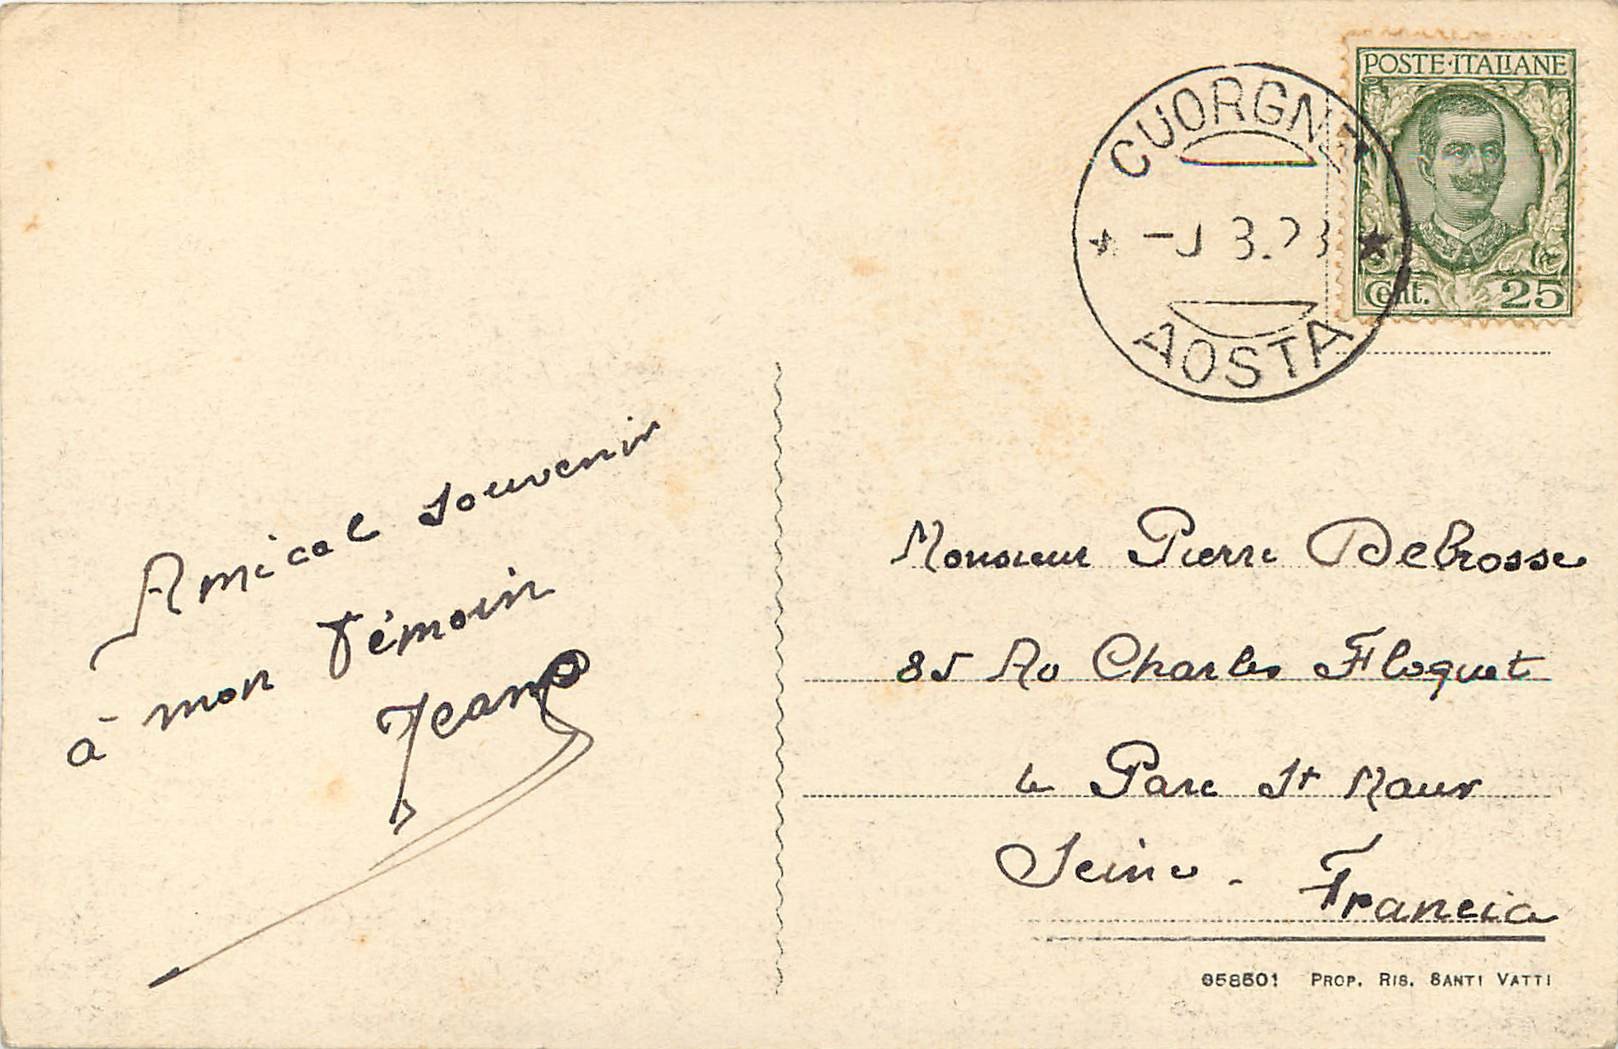 POSTE·ITALIANE
Cent. 25
CUORGNÈ
3.2
AOSTA
Amical souvenir
à mon témoin
Jean
Monsieur Pierre Debrosse
85 Av Charles Floquet
Le Parc St Maur
Seine - Francia
958501 PROP. RIS. SANTI VATTI